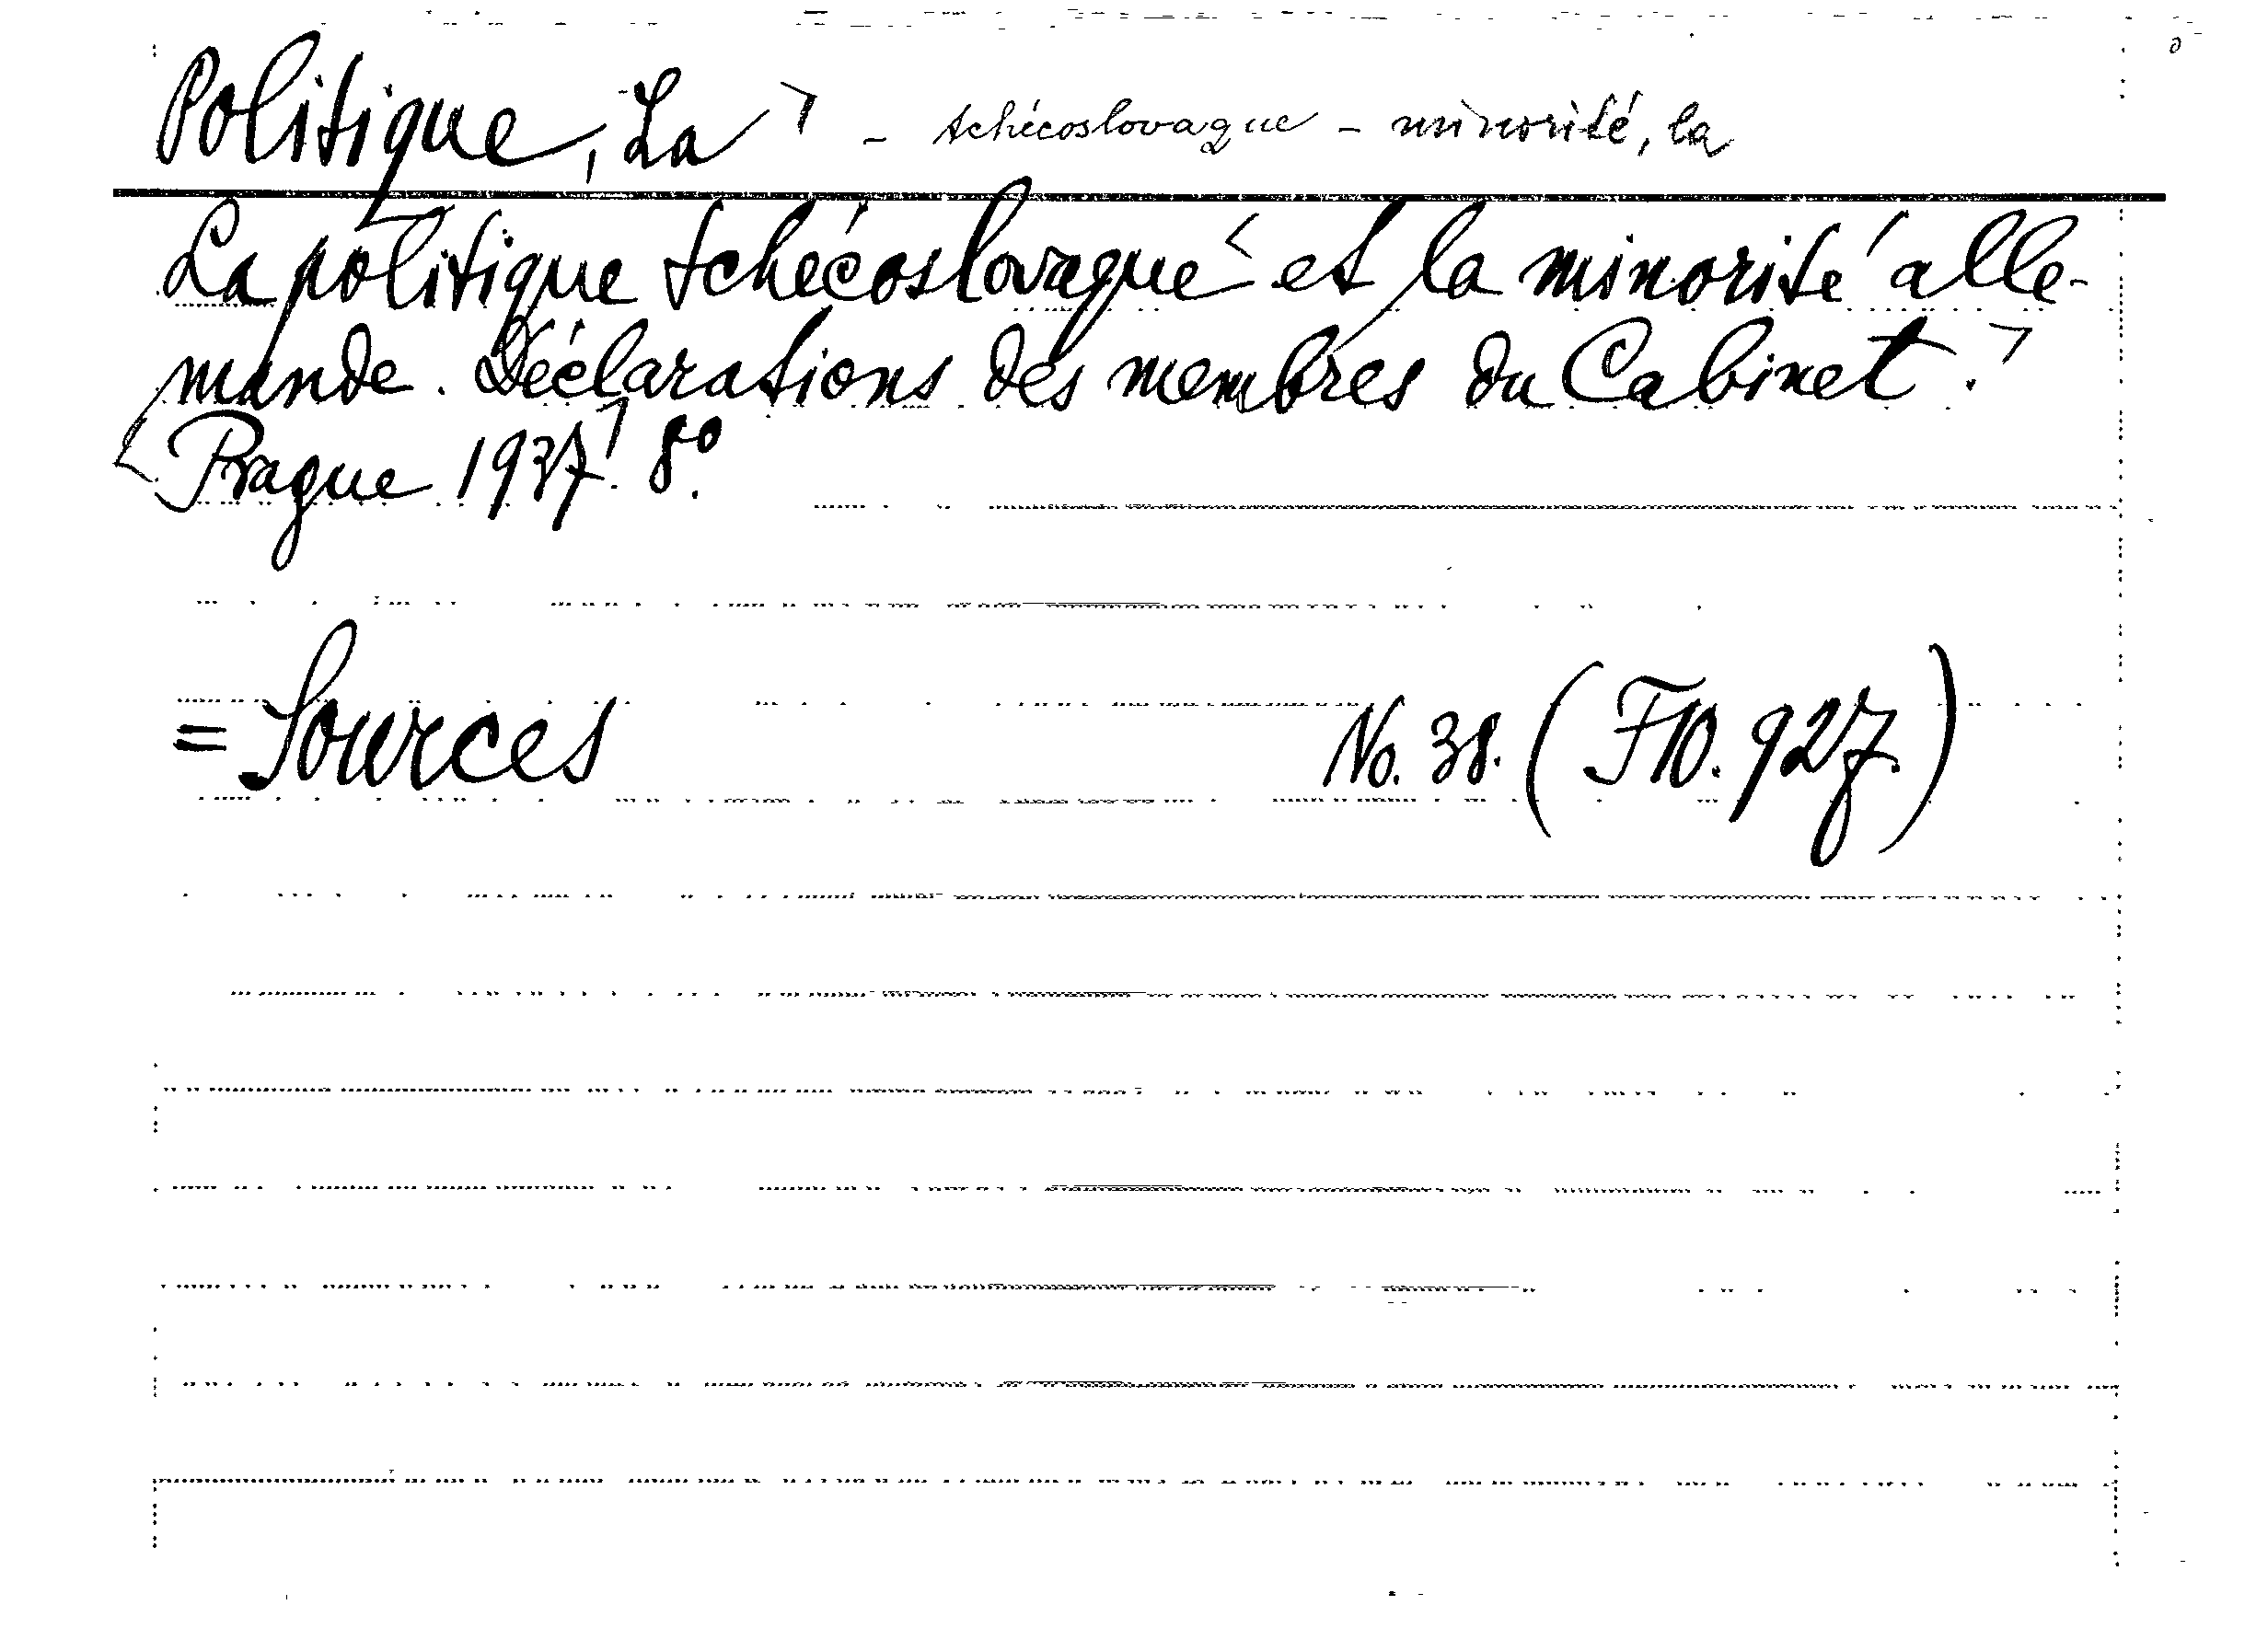 Politique, La - tchécoslovaque - minorité, la
La politique tchécoslovaque et la minorité alle-
mande. Déclarations des membres du Cabinet.
Prague 1937. 8º.
= Sources No. 38. (F10. 927.)